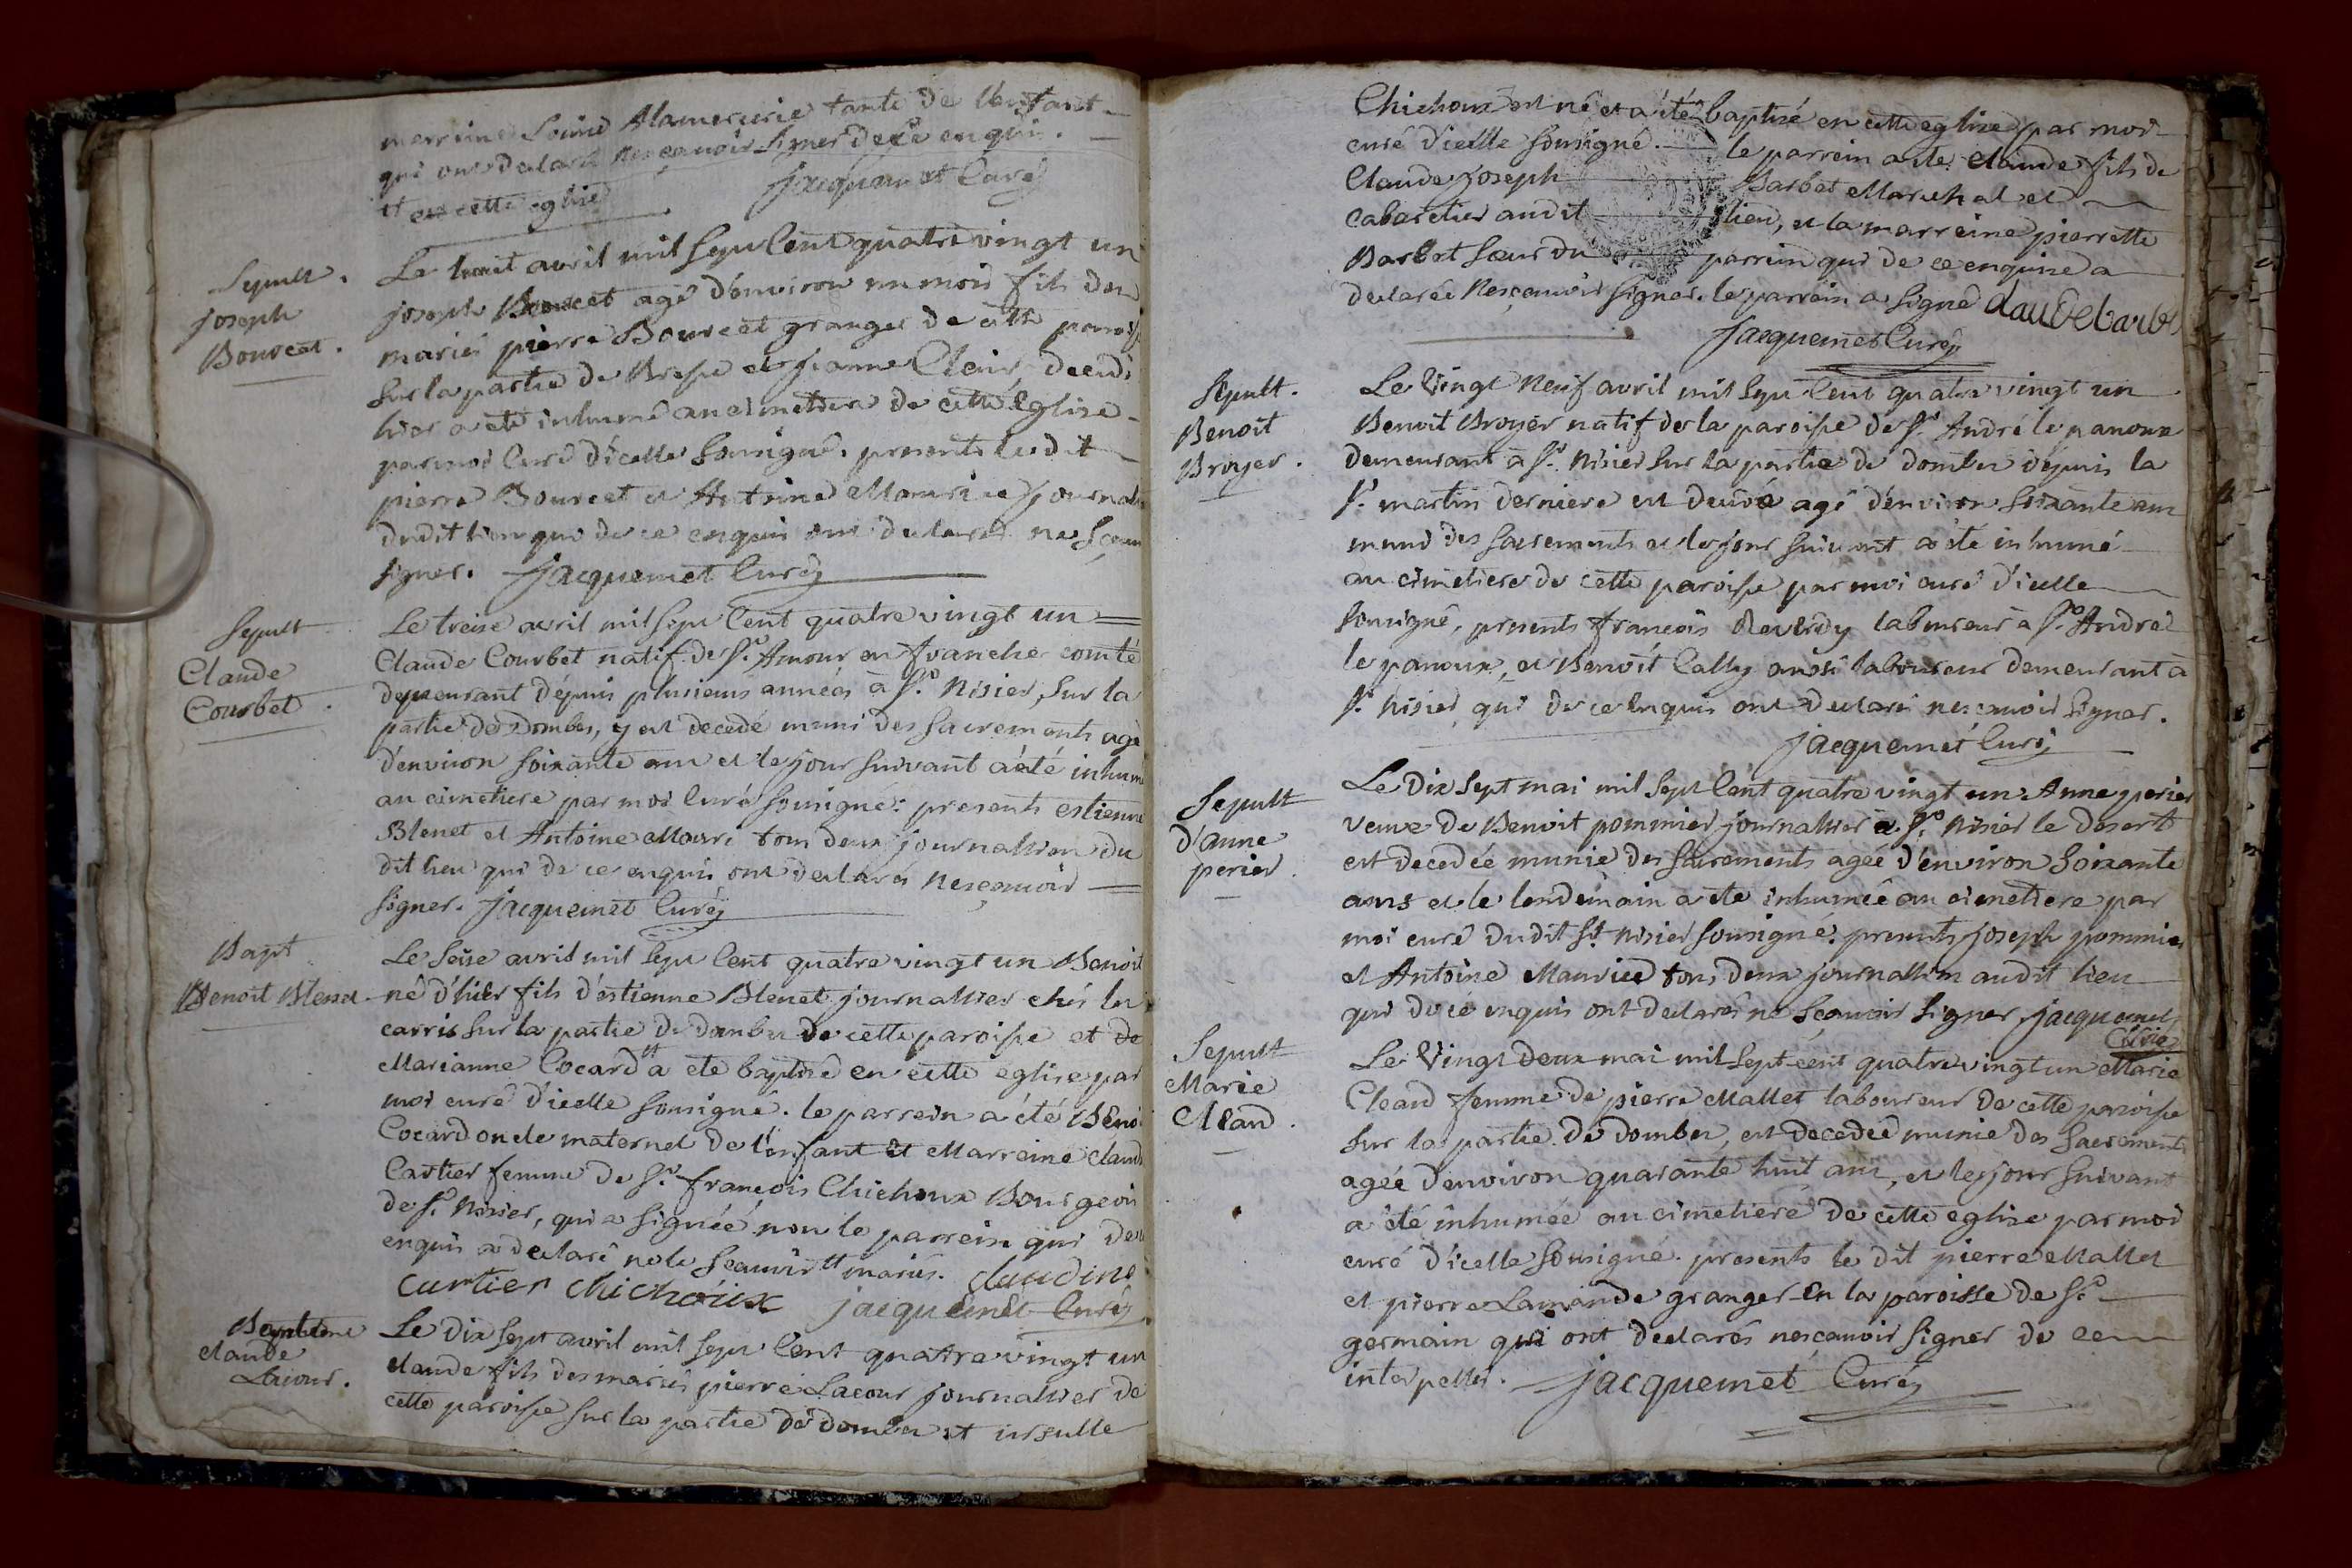 marreine Alamercerie tante de l'enfant
qui ont declaré ne sçauoir signer de ce enquis.
et en cette eglise Jacquemet Curé
Sepult.
joseph
Bourcet.
Le huit avril mil sept Cent quatre vingt un
joseph Bourcet agé d'environ un mois fils des
mariés pierre Bourcet granger de cette paroisse
sur la partie de Bresse et jeanne Clair, decedé
hier a eté inhumé au cimetiere de cette Eglise
par moi Curé d'icelle soussigné. presents ledit
pierre Bourcet et Antoine Maurice journalier
dudit lieu qui de ce enquis ont declarés ne sçauoir
signer. Jacquemet Curé
Sepult
Claude
Courbet.
Le treise avril mil sept Cent quatre vingt un
Claude Courbet natif de St. Amour en franche comté
demeurant dépuis plusieurs années à St. Nisier, sur la
partie de Dombes, y est decedé muni des sacrements agé
d'environ soixante ans et le jour suivant a été inhumé
au cimetiere par moi Curé soussigné: presents estienne
Blenet et Antoine Mauri tous deux journalliers du
dit lieu qui de ce enquis ont declarés ne sçauoir
signer. Jacquemet Curé
Bapt
Benoit Blenet
Le seise avril mil sept Cent quatre vingt un Benoit
né d'hier fils d'estienne Blenet journallier chés les
carris sur la partie de dombes de cette paroisse et de
Marianne Cocard tt a eté baptisé en cette eglise par
moi curé d'icelle sousigné. le parrein a été Benoit
Cocard oncle maternel de l'enfant et Marreine claudine
Cartier femme de Sr. françois Chichoux Bourgeois
de St. Nisier, qui a signéé non le parrein qui de ce
enquis a declaré ne le sçauoir tt mariés. claudine
curtier chichoux Jacquemet Curé
Baptême
claude
Lacour.
Le Dix sept avril mil sept Cent quatre vingt un
claude fils des mariés pierre Lacour journallier de
cette paroisse sur la partie de dombes et ursulle
Chichoux est né et a été baptisé en cette eglise par moi
curé d'icelle sousigné. le parrein a ete Claude fils de
Claude joseph Barbet Marechal et
cabaretier audit lieu, et la marreine pierrette
Barbet sœur du parrein qui de ce enquise a
declarée ne sçauoir signer. le parrein a signé claudebarbe
Jacquemet Curé
Sépult.
Benoit
Broyer.
Le Vingt Neuf avril mil sept Cent quatre vingt un
Benoit Broyer natif de la paroisse de St. André le panoux
demeurant à St. Nisier sur la partie de dombes dépuis la
St. martin derniere est decedé agé d'environ soixante ans
muni des sacrements et le jour suivant a été inhumé
au cimetiere de cette paroisse par moi curé d'icelle
sousigné, presents françois Reverdy laboureur à St. André
le panoux, et Benoît Cally aussi laboureur demeurant à
St. Nisier qui de ce Enquis ont declaré ne sçauoir signer.
Jacquemet Curé
Sepult
d'anne
perier.
Le Dix sept mai mil sept Cent quatre vingt un Anne perier
veuve de Benoit pommier journallier à St. Nisier le desert
est decedée munie des sacrements agéé d'environ soixante
ans et le lendemain a ete inhumée au cimetiere par
moi curé dudit St. Nisier sousigné. presents joseph pommier
et Antoine Maurice tous deux journalliers audit lieu
qui de ce enquis ont declarés ne sçauoir signer, Jacquemet
Curé
Sepult
Marie
Cleaud.
Le Vingt Deux mai mil sept cent quatre vingt un Marie
Cleaud femme de pierre Mallet laboureur de cette paroisse
sur la partie de dombes, est decedée munie des sacrements
agéé d'environ quarante huit ans, et le jour suivant
a été inhumée au cimetieré de cette eglise par moi
curé d'icelle sousigné. presents le dit pierre Mallet
et pierre Lamande granger en la paroisse de St.
germain qui ont declarés ne sçauoir signer de ce
interpellés. Jacquemet Curé